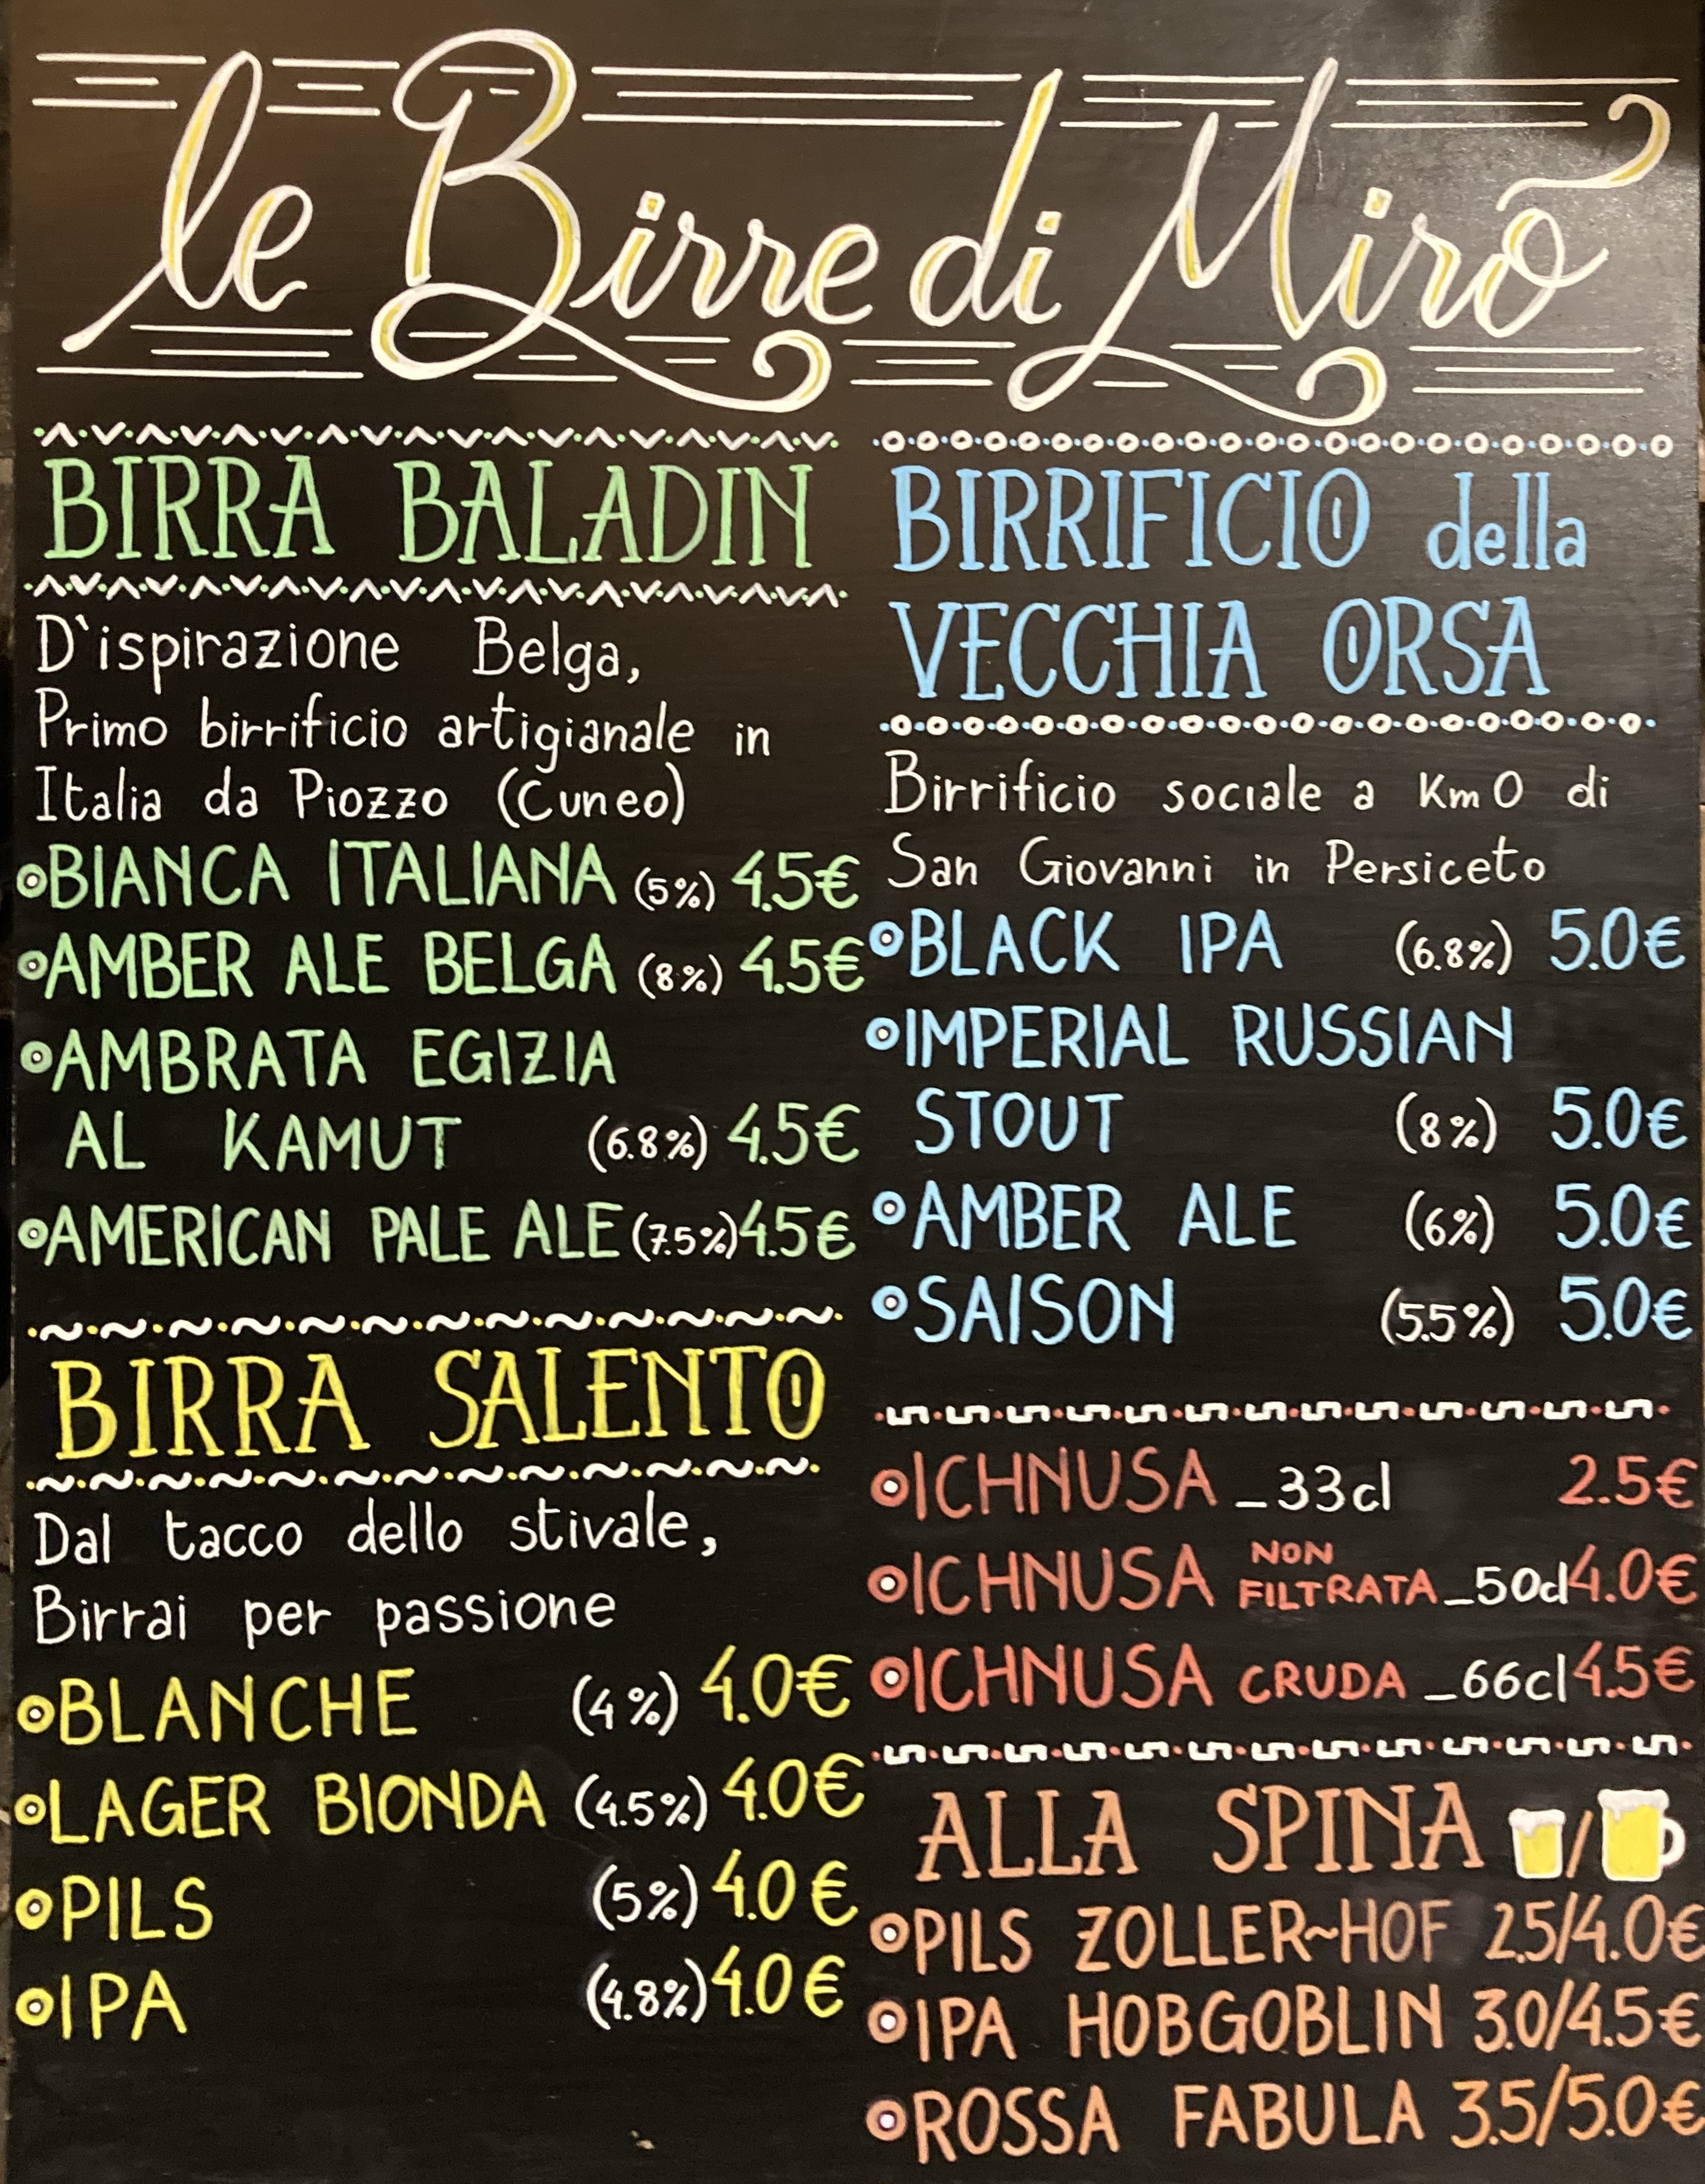 le Birre di Mirò
BIRRA BALADIN
D'ispirazione Belga,
Primo birrificio artigianale in
Italia da Piozzo (Cuneo)
BIANCA ITALIANA (5%) 4.5€
AMBER ALE BELGA (8%) 4.5€
AMBRATA EGIZIA
AL KAMUT (6.8%) 4.5€
AMERICAN PALE ALE (7.5%) 4.5€
BIRRA SALENTO
Dal tacco dello stivale,
Birrai per passione
BLANCHE (4%) 4.0€
LAGER BIONDA (4.5%) 4.0€
PILS (5%) 4.0€
IPA (4.8%) 4.0€
BIRRIFICIO della
VECCHIA ORSA
Birrificio sociale a Km 0 di
San Giovanni in Persiceto
BLACK IPA (6.8%) 5.0€
IMPERIAL RUSSIAN
STOUT (8%) 5.0€
AMBER ALE (6%) 5.0€
SAISON (5.5%) 5.0€
ICHNUSA _33cl 2.5€
ICHNUSA NON FILTRATA _50cl 4.0€
ICHNUSA CRUDA _66cl 4.5€
ALLA SPINA /
PILS ZOLLER~HOF 2.5/4.0€
IPA HOBGOBLIN 3.0/4.5€
ROSSA FABULA 3.5/5.0€